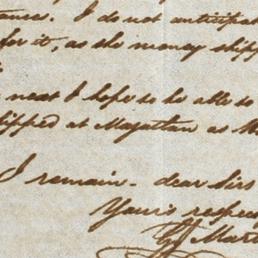 tance. I do not anticipat
for it, as the money shipp
next I hope to be able to
hipped at Mazatlan as M
I remain - dear sirs
Yours respec
Mart